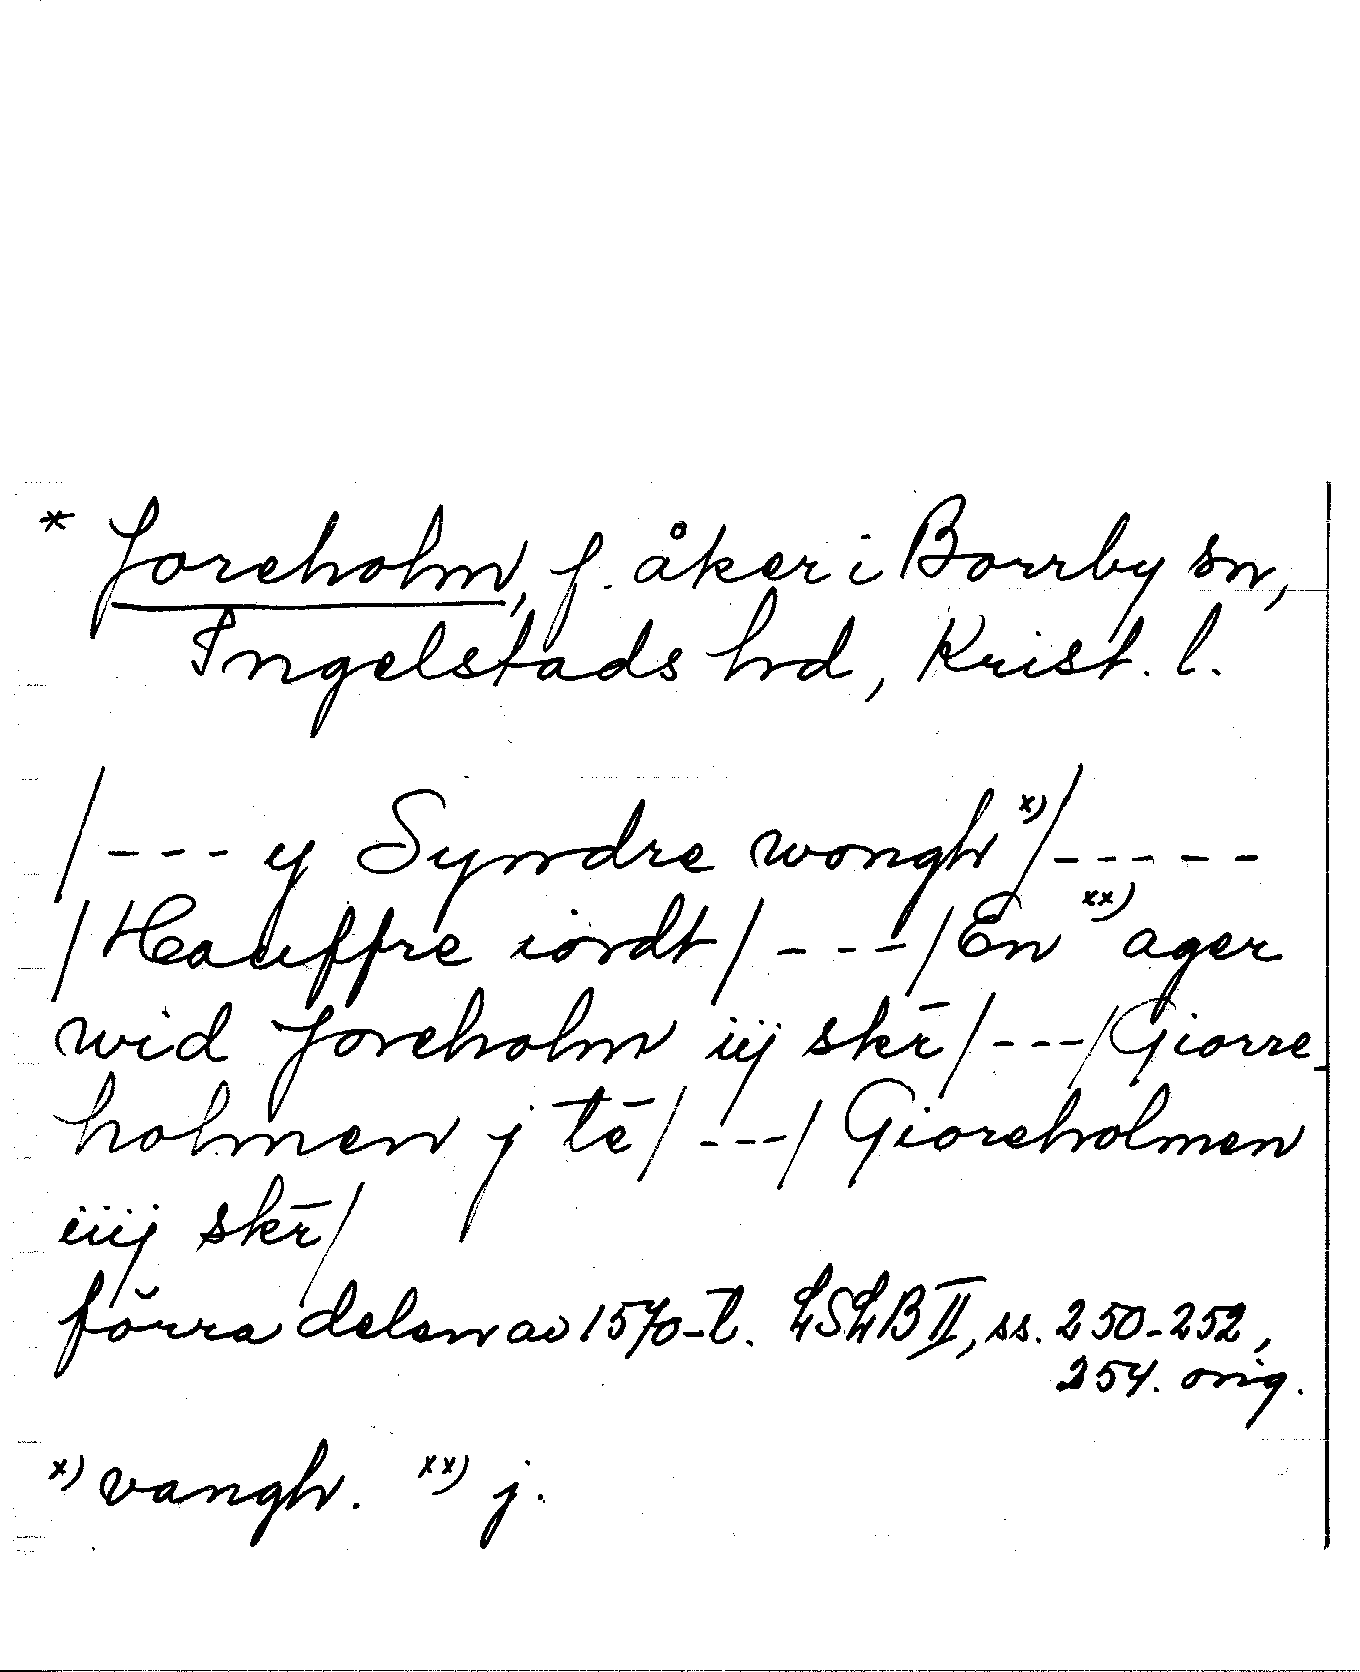 * Joreholm, f. åker i Borrby sn,
Ingelstads hd, Krist. l.
/--- y Syndre wongh x)/-----
/Hauffre iordt/----/En xx) ager
wid Joreholm iij skr̄/---/Giorre-
holmen j tē/---/Gioreholmen
iiij skr̄/
förra delen av 1570-t. LSLB II, ss. 250-252,
254. orig.
x) vangh. xx) j.